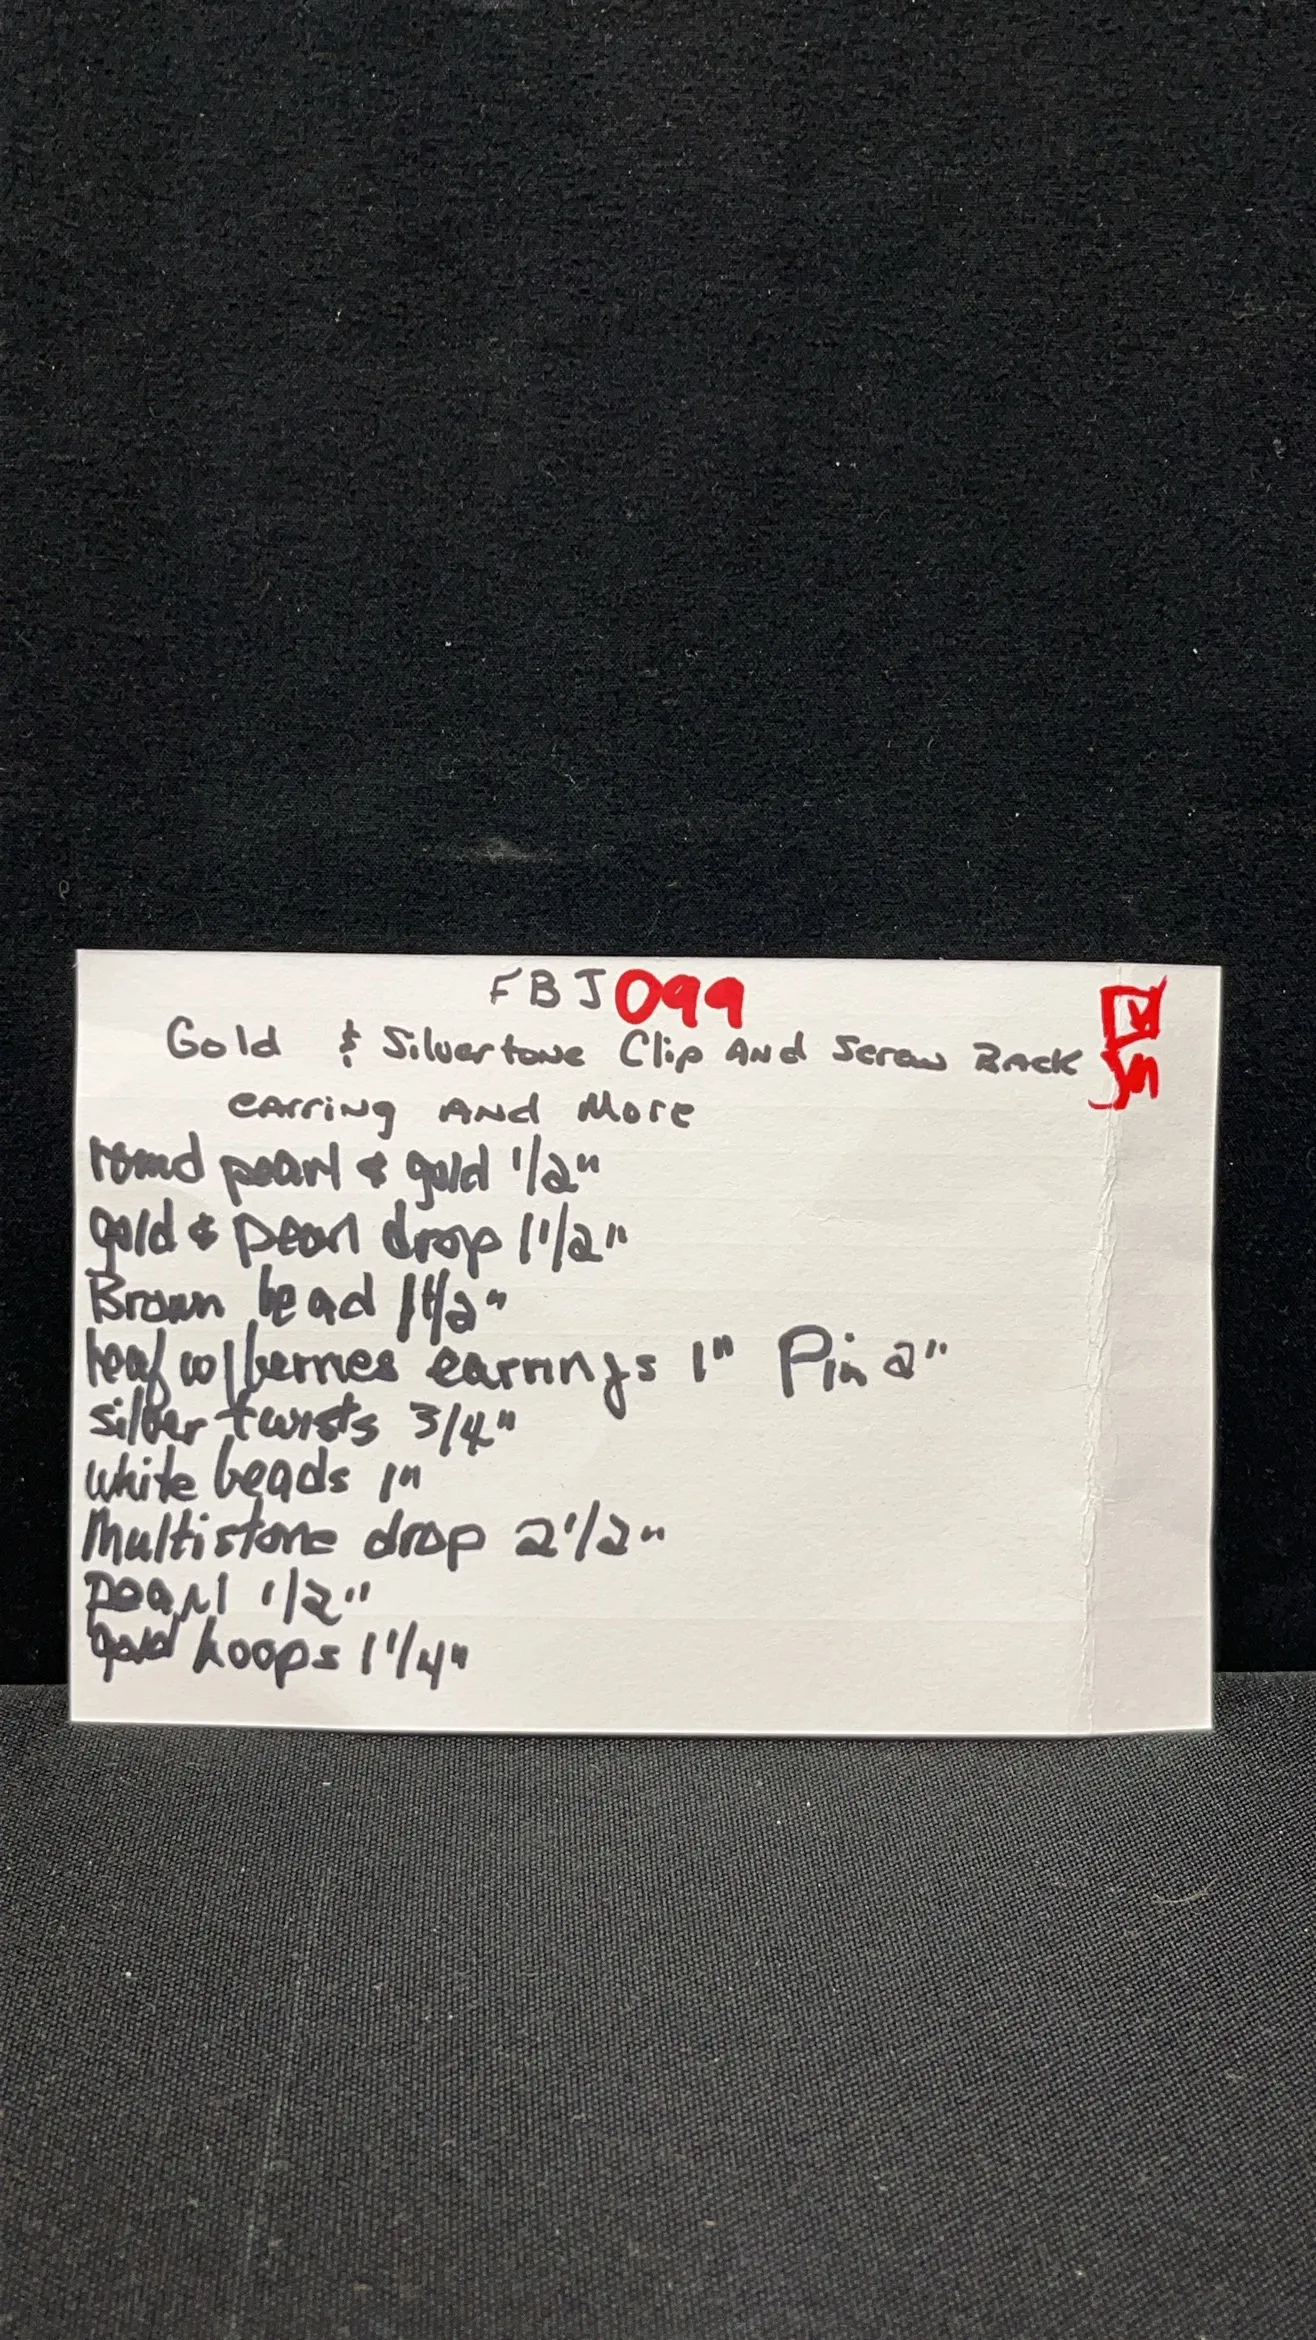 FBJ099
Gold & Silvertone Clip And Screw Back
earring And More
round pearl & gold 1/2"
gold & pearl drop 1 1/2"
Brown bead 1 1/2"
leaf w/berries earrings 1" Pin 2"
silver twists 3/4"
white beads 1"
Multistone drop 2 1/2"
pearl 1/2"
gold hoops 1 1/4"